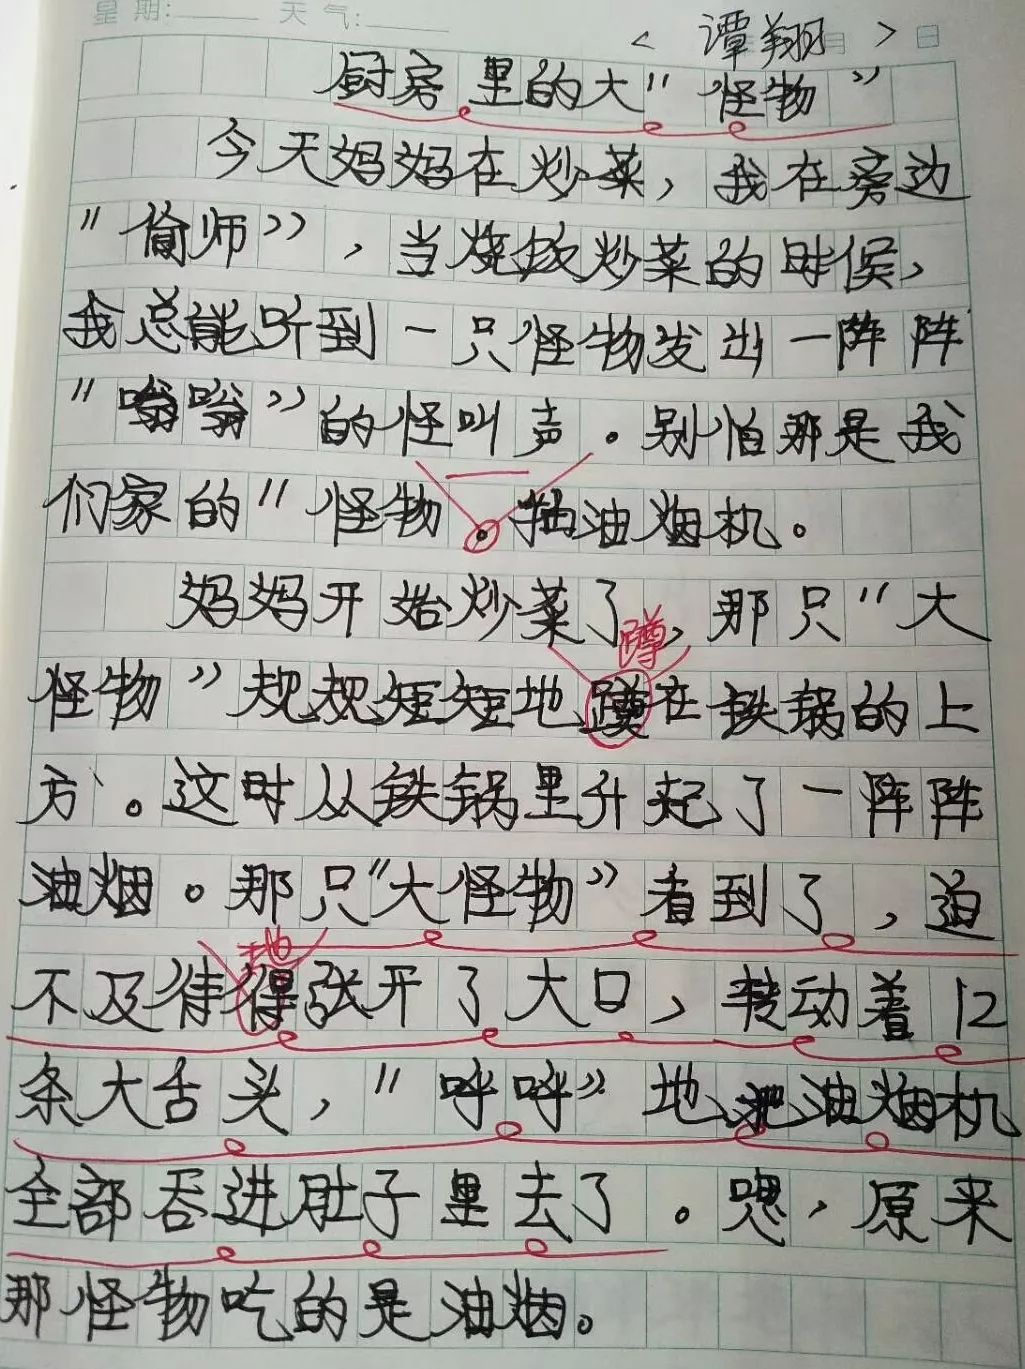 星期: 天气:
< 谭翔 > 月 日
厨房里的大"怪物"
今天妈妈在炒菜，我在旁边
"偷师"，当烧饭炒菜的时候，
我总能听到一只怪物发出一阵阵
"嗡嗡"的怪叫声。别怕那是我
们家的"怪物。抽油烟机。
妈妈开始炒菜了，那只"大
蹲
怪物"规规矩矩地蹲在铁锅的上
方。这时从铁锅里升起了一阵阵
油烟。那只"大怪物"看到了，迫
地
不及待得张开了大口，转动着12
条大舌头，"呼呼"地把油烟机
全部吞进肚子里去了。嗯，原来
那怪物吃的是油烟。